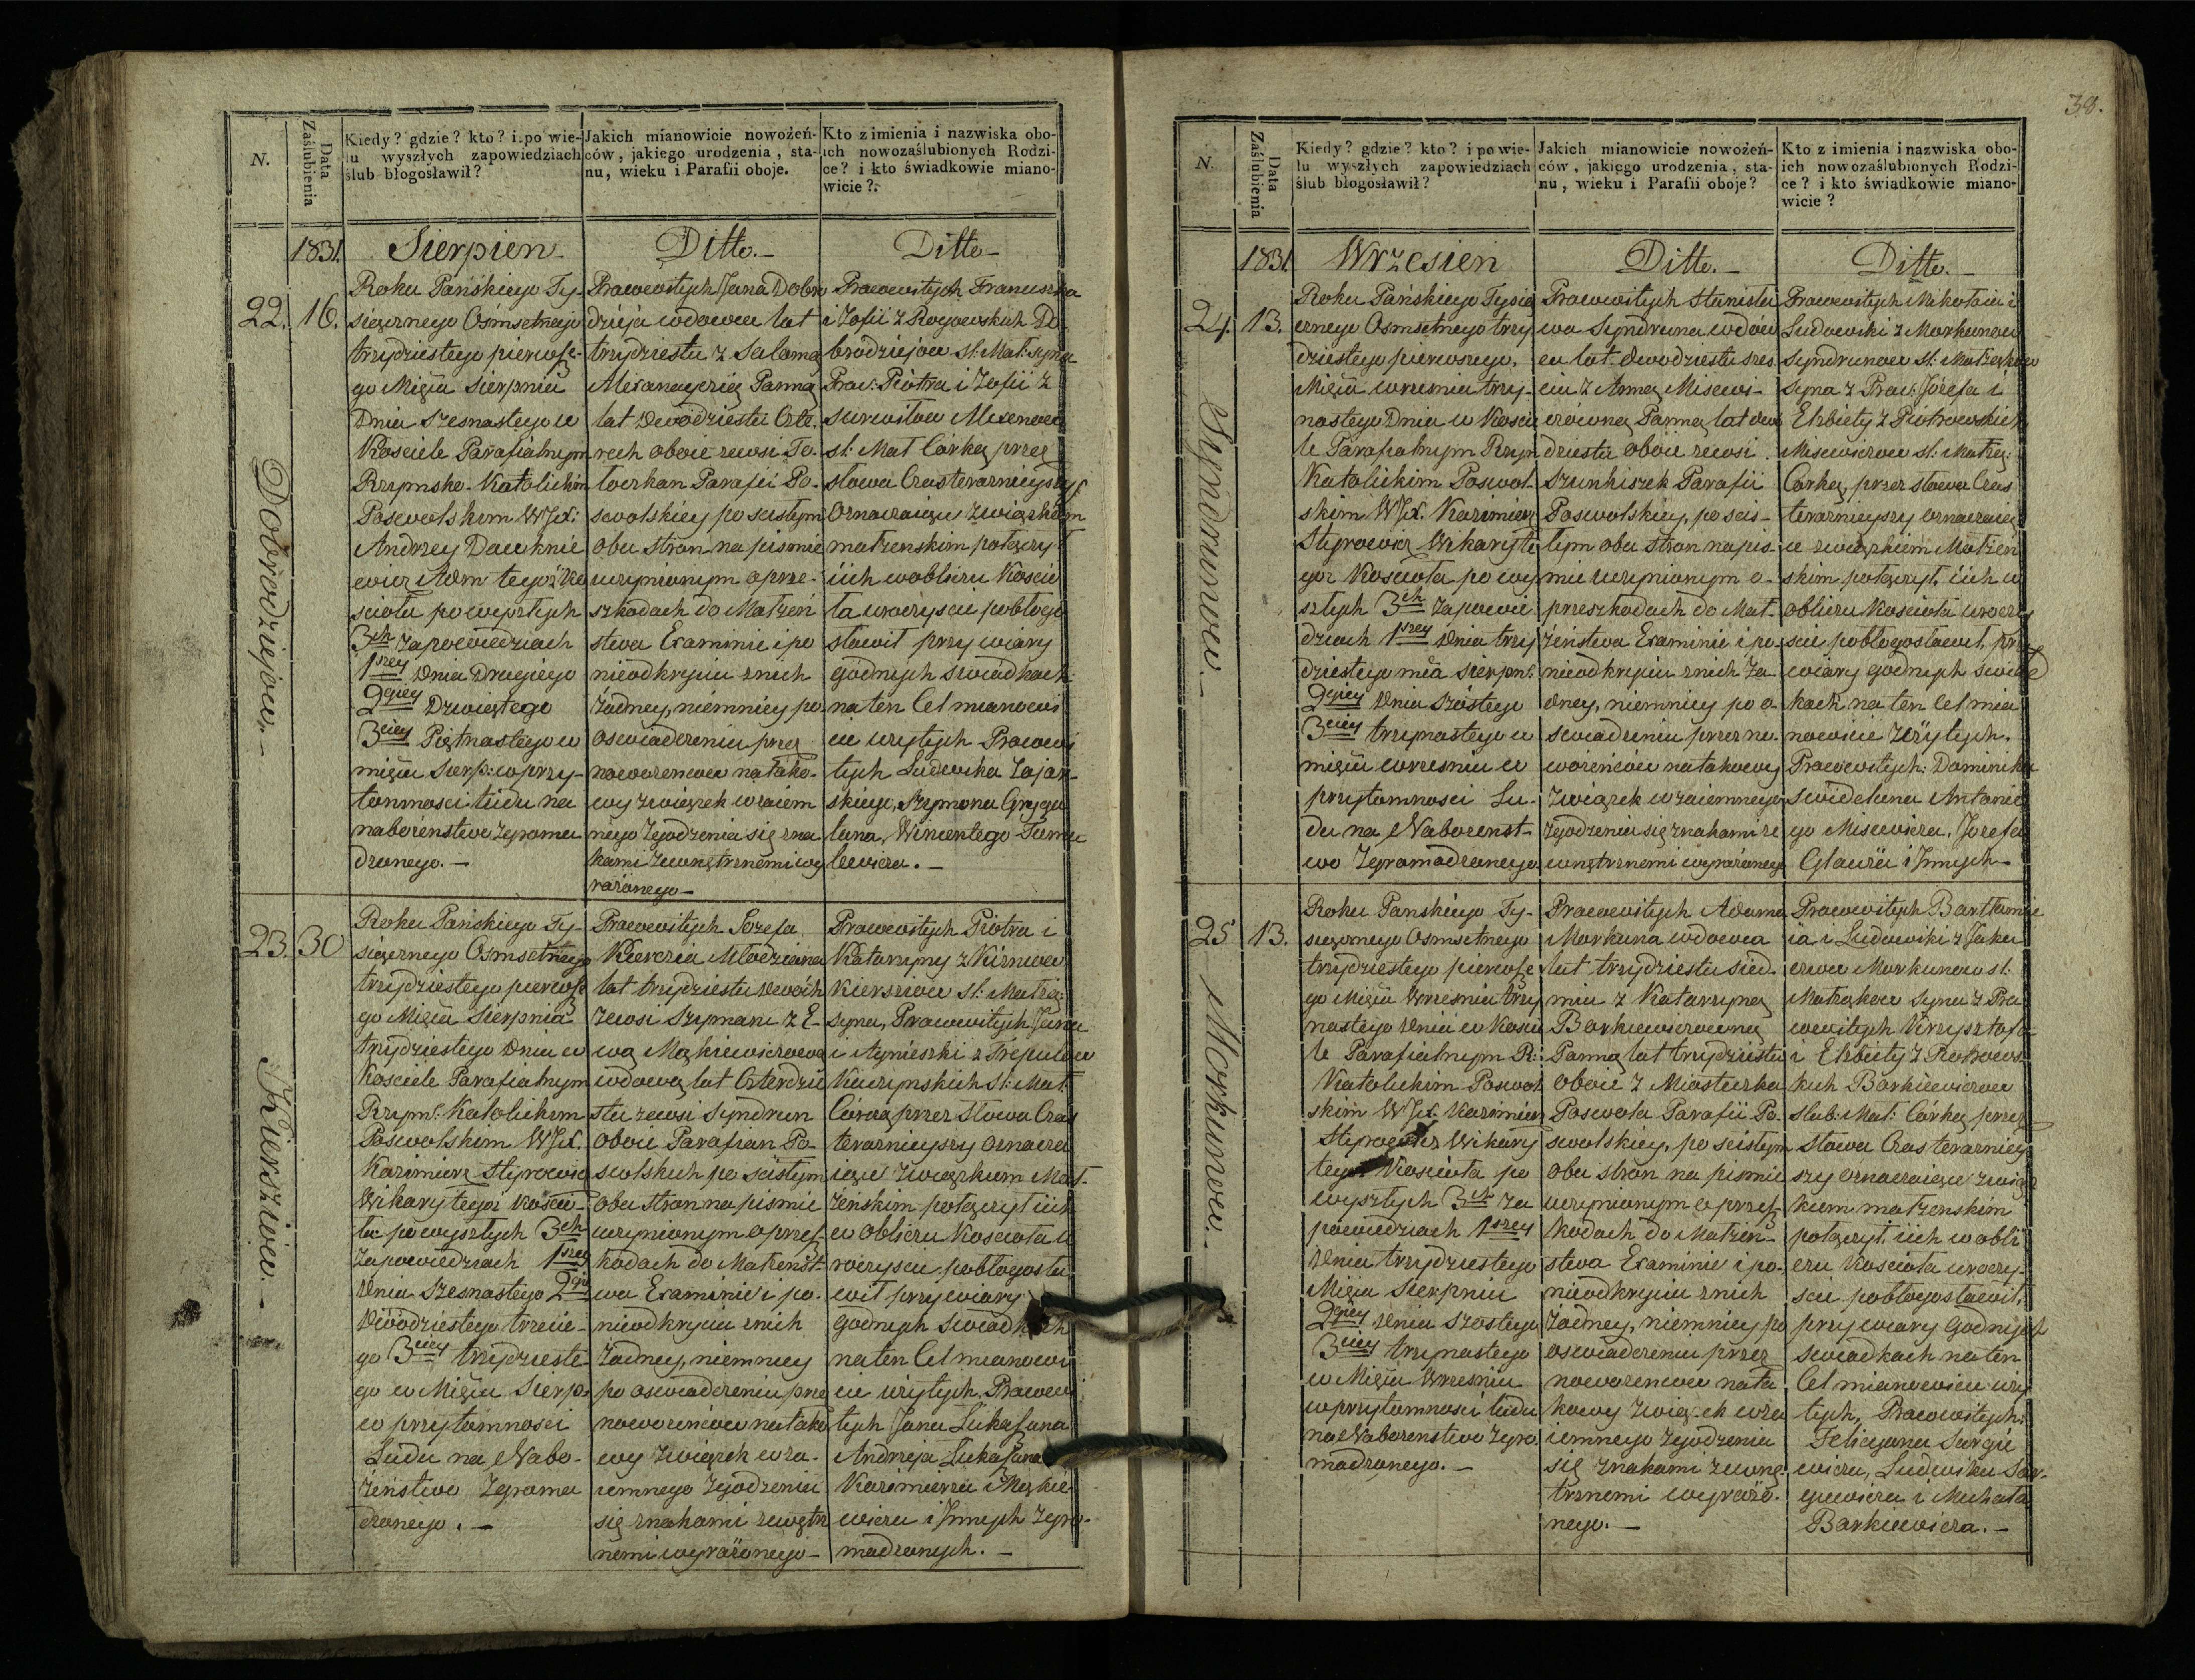 38.
N.
Data Zaślubienia
Kiedy? gdzie? kto? i po wie-
lu wyszłych zapowiedziach
ślub błogosławił?
Jakich mianowicie nowożeń-
ców, jakiego urodzenia, sta-
nu, wieku i Parafii oboje.
Kto z imienia i nazwiska obo-
ich nowozaślubionych Rodzi-
ce? i kto świadkowie miano-
wicie?
1831.
Sierpien
Ditto.—
Ditto—
22.
16.
Dobrodziejow.—
Roku Pańskiego Ty-
siącznego Osmsetnego
trzydziestego pierwsze-
go Mięsia Sierpnia
Dnia Szesnastego w
Kosciele Parafialnym
Rzymsko-Katolickim
Poswolskim WJX:
Andrzey
Adm tegoż Ko
sciola po wyszłych
3ch Zapowiedziach
1szey Dnia Drugiego
2giey Dziwiętego
3ciey Piętnastego w
mięsiu Sierp: w przy-
tomnosci ludu na
nabożenstwo zgroma
dzonego.—
Prawowitych Jana Dobro
dzieja wdowca lat
trzydziestu z Salomą
Pannę
lat Dwodziestu Czte-
rech oboie zewsi To-
Parafii Po-
swolskiey po scisłym
obu stron na pismie
uczynionym o prze-
szkodach do Małżeń
stwa Examinie i po
nieodkryciu znich
żadney, niemniey po
oswiadczeniu przez
nowożencow na tako-
wy związek wzaiem
nego zgodzenia się zna
kami zewnętrznemi wy
rażonego—
Prawowitych Franciszka
i Zofii z Rogowskich Do-
brodziejow Sl: Mał: Syna
Praw: Piotra i Zofii z
sl: Mał Corkę przez
słowa Czasterazniejszy
Oznaczaięce związkiem
matżenskim połączył
iich wobliczu Koscio
ła uroczyscie pobłogo
sławił przy wiary
godnych Swiadkach
na ten Cel mianowi
cie użytych Prawowi
tych Ludwika Zajan-
skiego, Szymona
Wincentego
23.
30
Kierszisow.—
Roku Pańskiego Ty-
siącznego Osmsetnego
trzydziestego pierwsze
go Mięsia Sierpnia
trzydziestego Dnia w
Kosciele Parafialnym
Rzym: Katolickim
Poswolskim WJX.
Kazimierz Styrowicz
Wikary tegoż Koscio-
ła po wyszłych 3ch
Zapowiedziach 1szey
Dnia Szesnastego 2giey
Dwódziestego trzecie-
go 3ciey trzydzieste-
go w Mięsiu Sierp:
w przytomnosci
Ludu na Nabo-
żeństwo Zgroma
dzonego.—
Prawowitych Józefa
Młodziana
lat trzydziestu dwóch
zewsi Szymani z E-
wą Mąkiewiczową
wdową lat Czterdzie
stu zewsi Syndrun
oboie Parafian Po-
swolskich po scisłym
obu stron na pismie
uczynionym o przesz-
kodach do Małżenst-
wa Examinie i po-
nieodkryciu znich
żadney, niemniey
po oswiadczeniu prze
nowożeńcow na tako
wy związek wza-
iemnego zgodzenia
się znakami zewnętrz
nemi wyrażonego—
Prawowitych Piotra i
Katarzyny z Kirnow
sl: Małżą:
Syna, Prawowitych Jana
i Agnieszki z
Sl: Mał:
Córką przez Słowa Czas
terazniejszy oznacza
iące związkiem Mał-
żeńskim połączył iich
w Obliczu Kosciola u
roczyscie pobłogosła
wił przy wiary
godnych Swiadkach
na ten Cel mianowi
cie użytych Prawowi
tych Jana Lukaszuna
Andrzeja Lukaszuna
Kazimierza Mąkie-
wicza i Innych Zgro-
madzonych.—
N.
Data Zaślubienia
Kiedy? gdzie? kto? i po wie-
lu wyszłych zapowiedziach
ślub błogosławił?
Jakich mianowicie nowożeń-
ców, jakiego urodzenia, sta-
nu, wieku i Parafii oboje?
Kto z imienia i nazwiska obo-
ich nowozaślubionych Rodzi-
ce? i kto świadkowie miano-
wicie?
1831.
Wrzesień
Ditto.—
Ditto.—
24.
13.
Syndrunow.—
Roku Pańskiego Tysią
cznego Osmsetnego trzy
dziestego pierwszego,
Mięsia wrzesnia trzy-
nastego Dnia w Koscie
le Parafialnym Rzym
Katolickim Poswol-
skim WJX. Kazimierz
Styrowicz Wikary te
goż Kosciola po wy
szłych 3ch Zapowie
dziach 1szey dnia trzy
dziestego mca Sierpni
2giey dnia szóstego
3ciey trzynastego w
mięsiu wrzesniu w
przytomnosci Lu-
du na Nabożenst-
wo Zgromadzonego
Prawowitych Stanisła
wa Syndruna wdow
ca lat dwodziestu szes
ciu z Anną Misewi-
czówną Panną lat dwu
dziestu oboie zewsi
Parafii
Poswolskiey, po scis-
łym obu stron na pis-
mie uczynionym o-
przeszkodach do Mał-
żeństwa Examinie i po-
nieodkryciu znich ża-
dney, niemniey po o-
swiadczeniu przez no-
wożeńcow na takowy
związek wzaiemnego
zgodzenia się znakami ze
wnętrznemi wyrażonego
Prawowitych Mikołaia i
Ludowiki z Morkunow
Syndrunow sl: Małżąkow
Syna z Praw: Józefa i
Elzbiety z Piotrowskich
Misewiczow sl: Małżą:
Corką, przez słowa Czas
terazniejszy oznaczaią
ce związkiem Małżeń
skim połączył, iich w
obliczu Kosciola uroczy
scie pobłogosławił, przy
wiary godnych swiad
kach na ten cel mia
nowicie Zóżytych.
Prawowitych: Dominika
Antonie
go Misewicza, Jozefa
i Innych—
25
13.
Morkunow.—
Roku Panskiego Ty-
siącznego Osmsetnego
trzydziestego pierwsze
go Mięsia Wrzesnia trzy
nastego dnia w Koscie
le Parafialnym R:
Katolickim Poswol
skim WJX. Kazimierz
Styrowicz Wikary
tegoż Kosciola po
wyszłych 3ch Za
powiedziach 1szey
dnia trzydziestego
Mięsia Sierpnia
2giey dnia szostego
3ciey trzynastego
w Mięsiu Wrzesniu
w przytomnosci ludu
na Nabożenstwo zgro
madzonego.—
Prawowitych Adama
Morkuna wdowca
lat trzydziestu sied-
miu z Katarzyną
Barkiewiczowną
Panną lat trzydziestu
oboie z Miasteczka
Poswola Parafii Po-
swolskiey, po scisłym
obu stron na pismie
uczynionym o przesz-
kodach do Małżen-
stwa Examinie i po-
nieodkryciu znich
żadney, niemniey po
oswiadczeniu przez
nowożencow na ta
kowy związek wza
iemnego zgodzenia
się znakami zewnę-
trznemi wyrażo-
nego.—
Prawowitych Bartłomie
ia i Ludowiki z
Morkunow sl:
Małżąkow Syna z Pra
wowitych Krzysztofa
i Elzbiety z
Barkiewiczow
Slub: Mał: Córką przez
słowa Czas terazniey
szy oznaczaiące związ
kiem małżenskim
połączył, iich w obli
czu Kosciola uroczy-
scie pobłogosławił,
przy wiary godnych
swiadkach na ten
Cel mianowicie uży
tych, Prawowitych:
Felicyana
Ludwika
i Michała
Barkiewicza.—